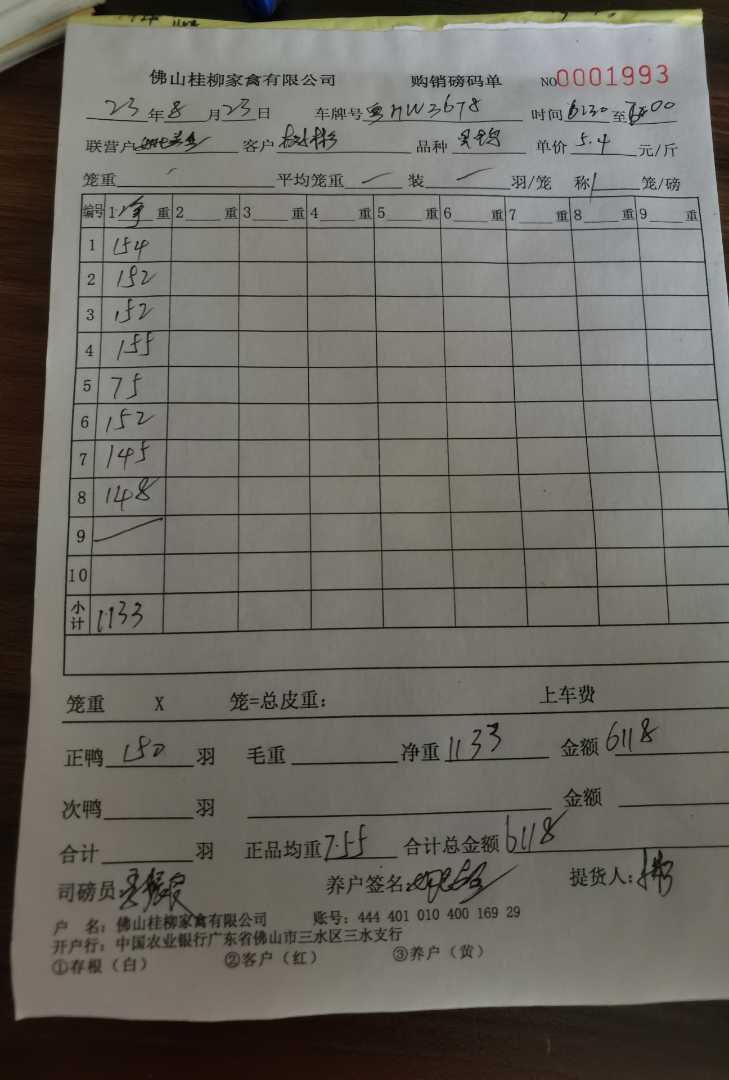 佛山桂柳家禽有限公司 购销磅码单 NO0001993
23年8月23日 车牌号粤MW3678 时间6:30至7:00
联营户 客户树彬 品种 单价5.4元/斤
笼重 平均笼重 装 羽/笼 称 笼/磅
编号 1净重 2 重 3 重 4 重 5 重 6 重 7 重 8 重 9 重
1 154
2 152
3 152
4 155
5 75
6 152
7 145
8 148
9
10
小计 1133
笼重 X 笼=总皮重: 上车费
正鸭150羽 毛重 净重1133 金额6118
次鸭 羽 金额
合计 羽 正品均重7.55 合计总金额6118
司磅员 养户签名: 提货人:彬
户 名: 佛山桂柳家禽有限公司 账号: 444 401 010 400 169 29
开户行: 中国农业银行广东省佛山市三水区三水支行
①存根(白) ②客户(红) ③养户(黄)